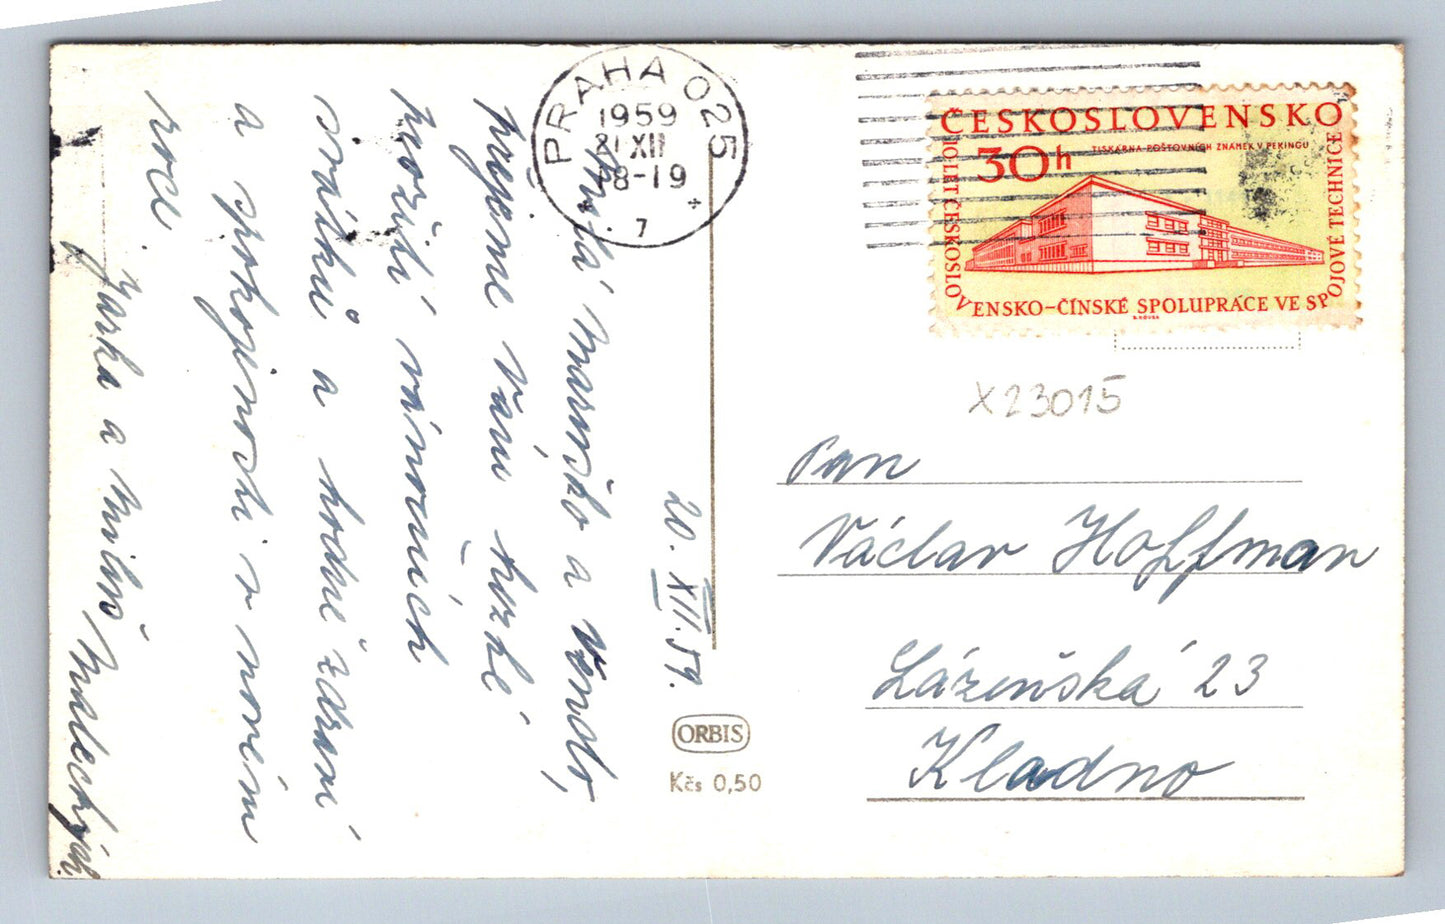 20. XII. 59.
Milá Maruško a Vendo,
přejeme Vám hezké
prožití vánočních
svátků a hodně zdraví
a spokojenosti v novém
roce.
Jarka a Miloš Malechých.
PRAHA 025
1959
21 XII
18-19
7
ČESKOSLOVENSKO
30h
TISKÁRNA POŠTOVNÍCH ZNÁMEK V PEKINGU
10 LET ČESKOSLOVENSKO-ČÍNSKÉ SPOLUPRÁCE VE SPOJOVÉ TECHNICE
X23015
Pan
Václav Hoffman
Lázeňská 23
Kladno
ORBIS
Kčs 0,50